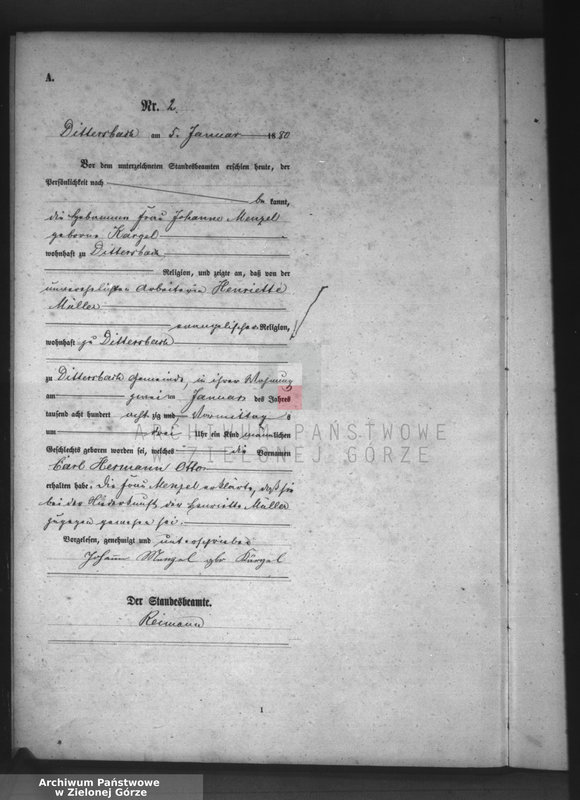 A.
Nr. 2.
Dittersbach am 5. Januar 1880
Vor dem unterzeichneten Standesbeamten erschien heute, der
Persönlichkeit nach
be kannt,
die Hebammen Frau Johanne Menzel
geborne Kärgel
wohnhaft zu Dittersbach
Religion, und zeigte an, daß von der
unverehelichten Arbeiterin Henriette
Müller
evangelischer Religion,
wohnhaft zu Dittersbach
zu Dittersbach Gemeinde, in ihrer Wohnung
am zweiten Januar des Jahres
tausend acht hundert acht zig und Vormittags
um drei Uhr ein Kind männlichen
Geschlechts geboren worden sei, welches die Vornamen
Carl Hermann Otto
erhalten habe. Die Frau Menzel erklärte, daß sie
bei der Niederkunft der Henriette Müller
zugegen gewesen sei.
Vorgelesen, genehmigt und unterschrieben
Johann Menzel gbr Kärgel
Der Standesbeamte.
Reimann
1
ARCHIWUM PAŃSTWOWE
W ZIELONEJ GÓRZE
Archiwum Państwowe
w Zielonej Górze